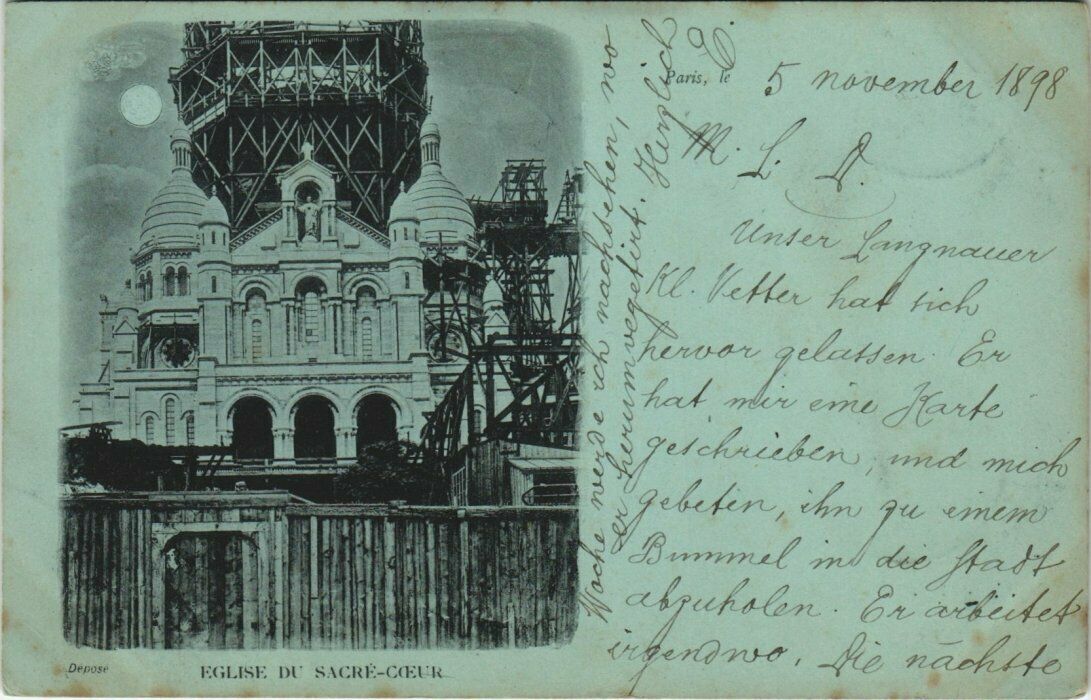 Paris, le 5 november 1898
M. L. D.
Unser Langnauer
Kl. Vetter hat sich
hervor gelassen. Er
hat mir eine Karte
geschrieben, und mich
gebeten, ihn zu einem
Bummel in die Stadt
abzuholen. Er arbeitet
irgendwo. Die nächste
Woche werde ich nachsehen, wo
er herumvegetirt. Herzlich
Déposé
EGLISE DU SACRÉ-CŒUR